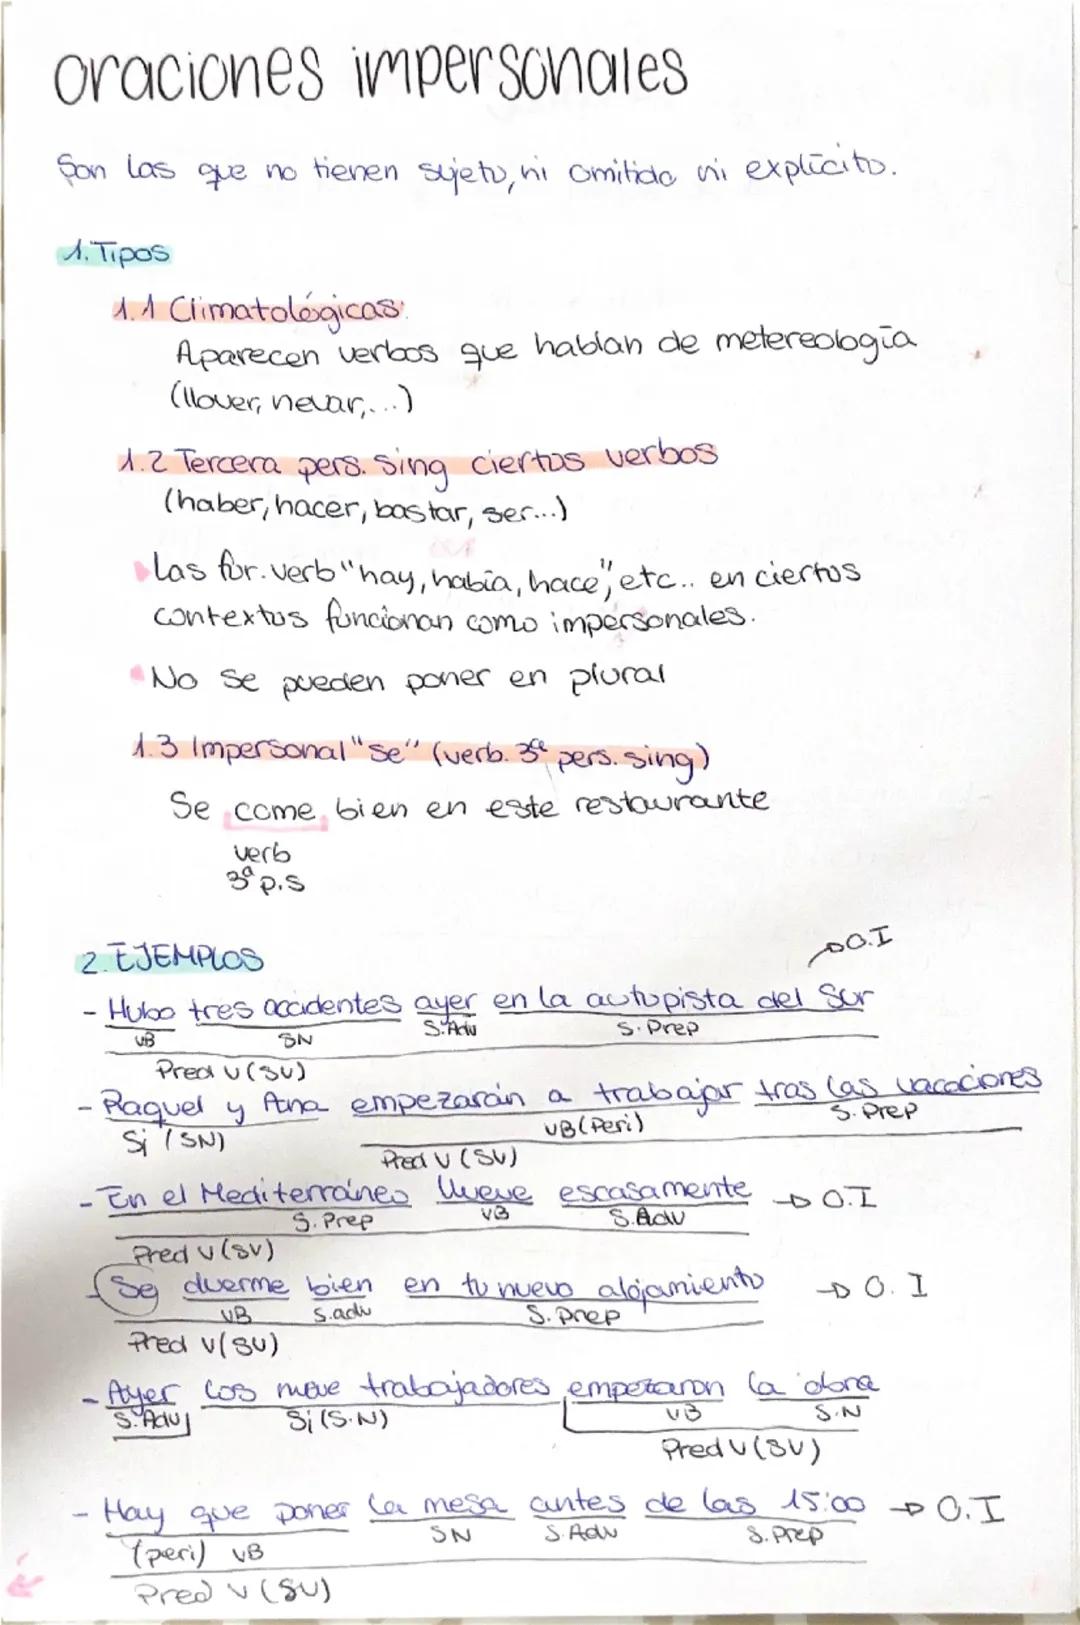 oraciones impersonales
Son las que no tienen sujeto, ni omitido ni explícito.
1. Tipos
1.1 Climatológicas:
Aparecen verbos que hablan de metereología
(llover, nevar,...)
1.2 Tercera pers. sing ciertos verbos
(haber, hacer, bastar, ser...)
Las for. verb "hay, había, hace", etc.. en ciertos
contextos funcionan como impersonales.
No se pueden poner en plural
1.3 Impersonal "se" (verb. 3ª pers. sing)
Se come bien en este restaurante
verb
3ª p.s
2. EJEMPLOS
O.I
- Hubo tres accidentes ayer en la autopista del Sur
VB SN S.Adv S. Prep
Pred V (SV)
- Raquel y Ana empezarán a trabajar tras las vacaciones
Sj (SN) VB (Peri) S. Prep
Pred V (SV)
- En el Mediterráneo llueve escasamente → O.I
S. Prep VB S.Adv
Pred V (SV)
- Se duerme bien en tu nuevo alojamiento → O. I
VB S.adv S. Prep
Pred V (SV)
- Ayer los nueve trabajadores empezaron la obra
S. Adv Sj (S.N) VB S.N
Pred V (SV)
- Hay que poner la mesa antes de las 15:00 → O.I
(peri) VB SN S.Adv S. Prep
Pred V (SV)